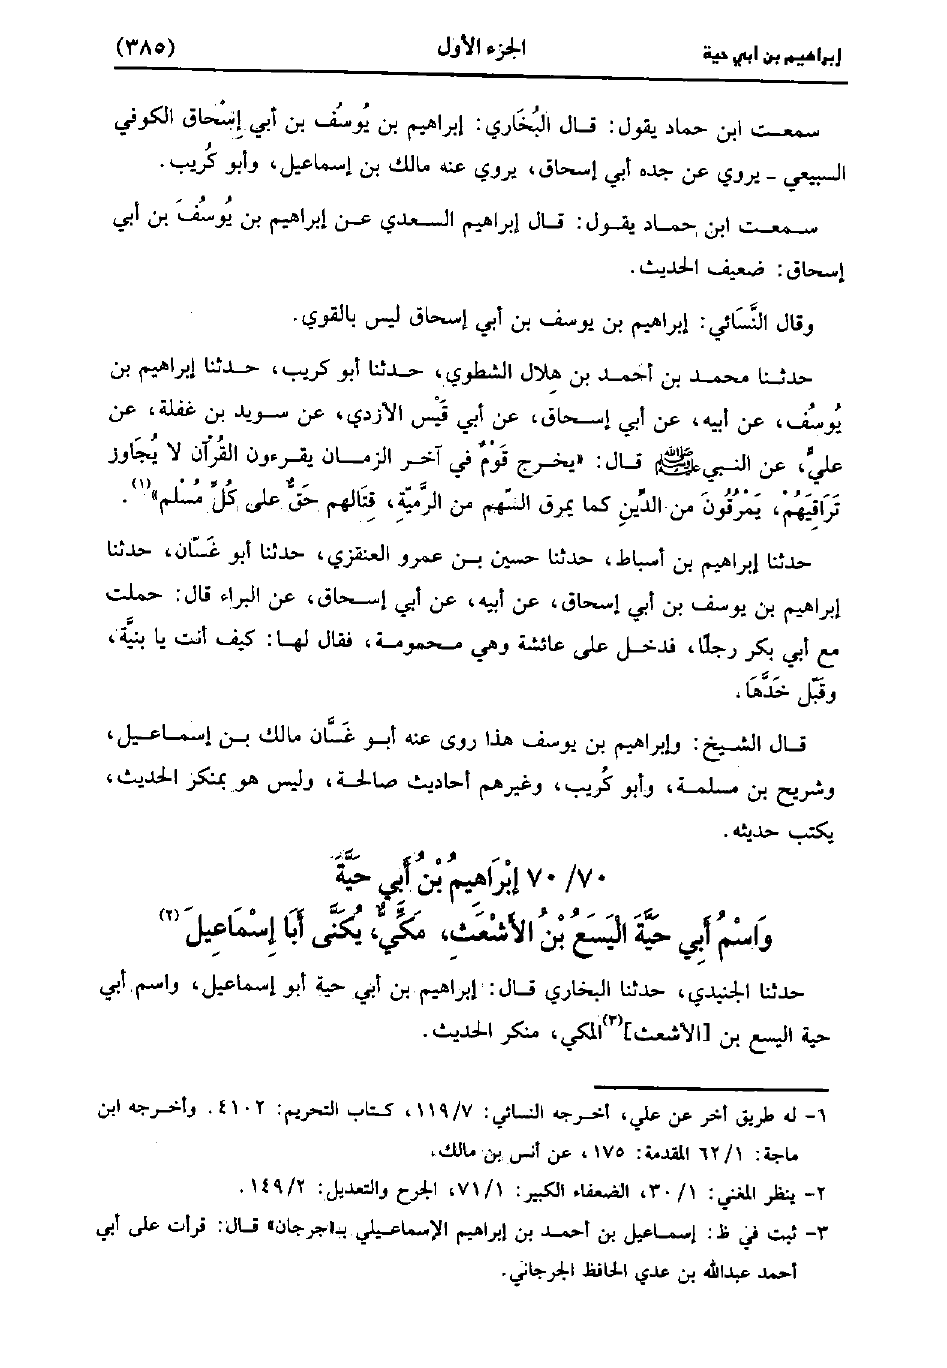 إبراهيم بن ابي حية الجزء الأول (٣٨٥)
سمعت ابن حماد يقول: قال البُخَاري: إبراهيم بن يُوسُف بن أبي إسْحاق الكوفي
السبيعي - يروي عن جده أبي إسحاق، يروي عنه مالك بن إسماعيل، وأبو كُريب.
سمعت ابن حماد يقول: قال إبراهيم السعدي عن إبراهيم بن يُوسُفَ بن أبي
إسحاق: ضعيف الحديث.
وقال النَّسَائي: إبراهيم بن يوسف بن أبي إسحاق ليس بالقوي.
حدثنا محمد بن أحمد بن هلال الشطوي، حدثنا أبو كريب، حدثنا إبراهيم بن
يُوسُف، عن أبيه، عن أبي إسحاق، عن أبي قَيْس الأزدي، عن سويد بن غفلة، عن
عليٍّ، عن النبي ﷺ قال: «يخرج قَوْمٌ في آخر الزمان يقرءون القُرْآن لا يُجَاوز
تَرَاقِيَهُمْ، يَمْرُقُونَ من الدِّينِ كما يمرق السَّهم من الرَّمِيَّةِ، قِتَالهم حَقٌّ على كُلِّ مُسْلم»(١).
حدثنا إبراهيم بن أسباط، حدثنا حسين بن عمرو العنقزي، حدثنا أبو غَسَّان، حدثنا
إبراهيم بن يوسف بن أبي إسحاق، عن أبيه، عن أبي إسحاق، عن البراء قال: حملت
مع أبي بكر رجلًا، فدخل على عائشة وهي محمومة، فقال لها: كيف أنت يا بنيَّة،
وقَبَّل خَدَّهَا.
قال الشيخ: وإبراهيم بن يوسف هذا روى عنه أبو غَسَّان مالك بن إسماعيل،
وشريح بن مسلمة، وأبو كُريب، وغيرهم أحاديث صالحة، وليس هو بمنكر الحديث،
يكتب حديثه.
٧٠/ ٧٠ إبْرَاهِيمُ بْنُ أَبي حَيَّةَ
وَاسْمُ أَبِي حَيَّةَ الْيَسَعُ بْنُ الأَشْعَثِ، مَكِّيٌّ، يُكَنَّى أَبَا إسْمَاعِيلَ(٢)
حدثنا الجنيدي، حدثنا البخاري قال: إبراهيم بن أبي حية أبو إسماعيل، واسم أبي
حية اليسع بن [الأشعث](٣) المكي، منكر الحديث.
١- له طريق أخر عن علي، أخرجه النسائي: ١١٩/٧، كتاب التحريم: ٤١٠٢. وأخرجه ابن
ماجة: ٦٢/١ المقدمة: ١٧٥، عن أنس بن مالك.
٢- ينظر المغني: ٣٠/١، الضعفاء الكبير: ٧١/١، الجرح والتعديل: ١٤٩/٢.
٣- ثبت في ظ: إسماعيل بن أحمد بن إبراهيم الإسماعيلي بـ«جرجان» قال: قرأت على أبي
أحمد عبدالله بن عدي الحافظ الجرجاني.